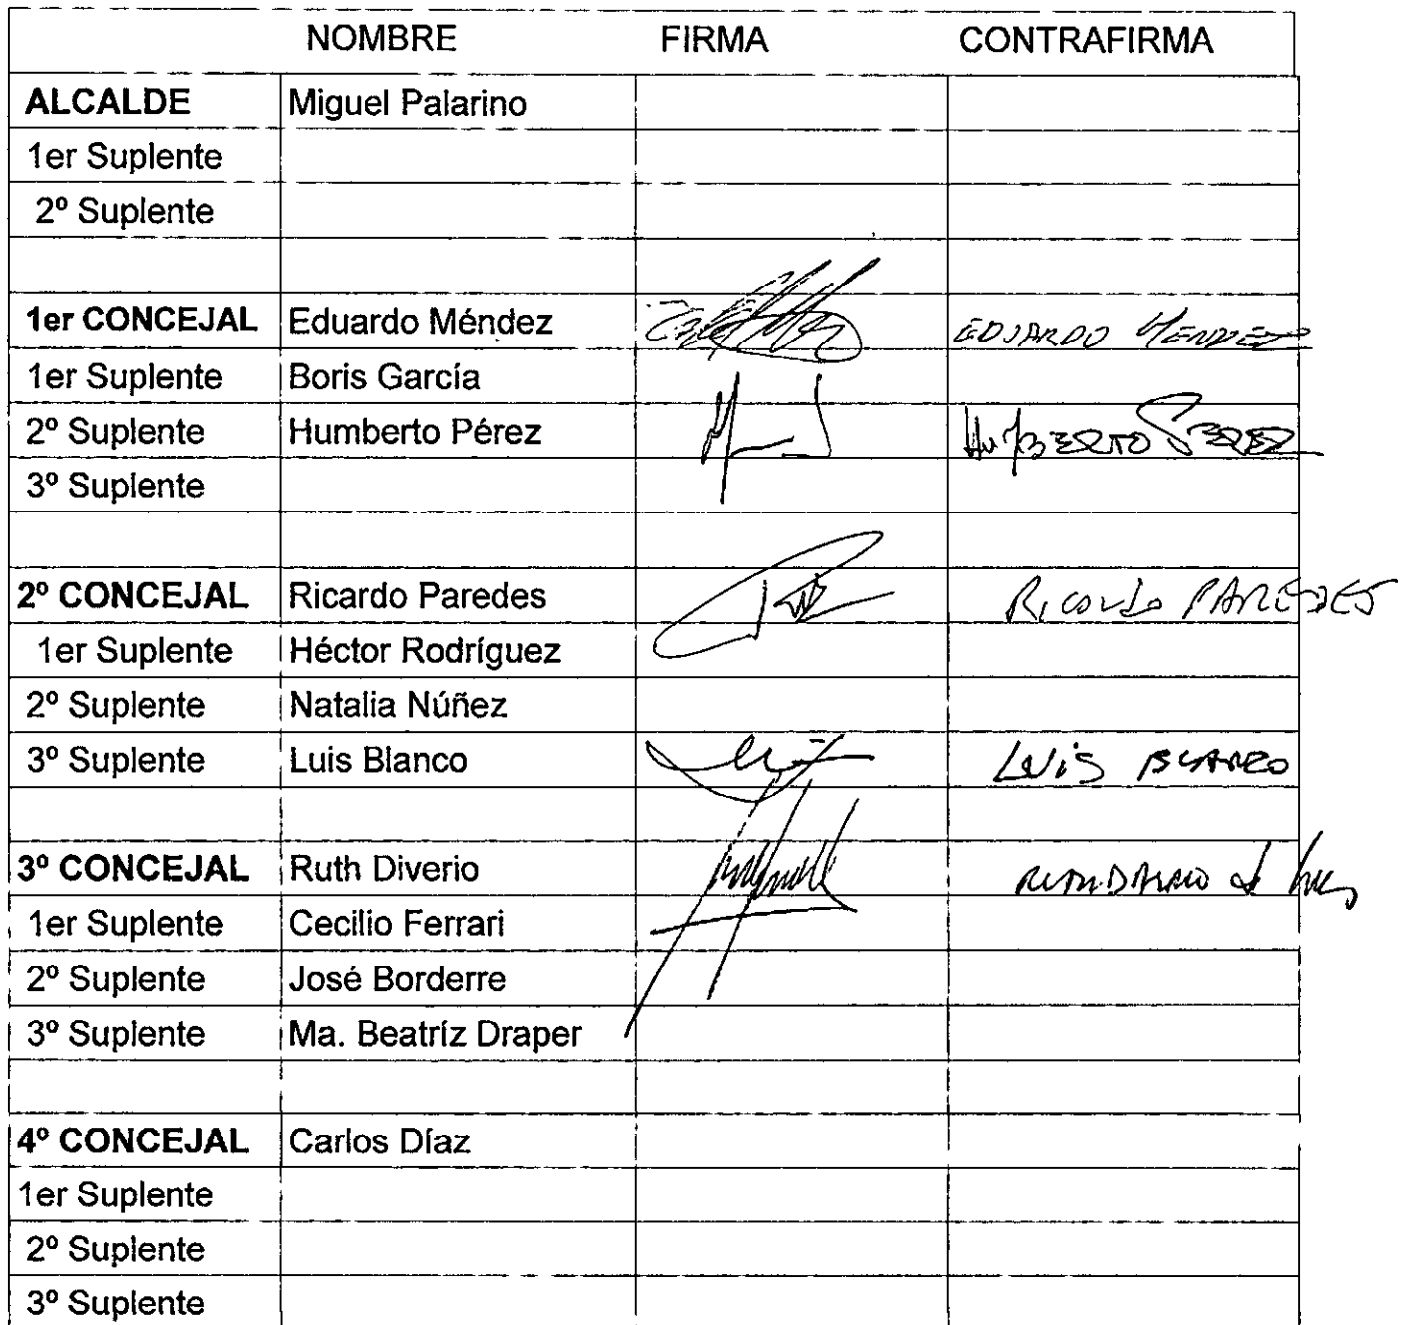 NOMBRE FIRMA CONTRAFIRMA
ALCALDE Miguel Palarino
1er Suplente
2º Suplente
1er CONCEJAL Eduardo Méndez EDUARDO MENDEZ
1er Suplente Boris García
2º Suplente Humberto Pérez HUMBERTO PEREZ
3º Suplente
2º CONCEJAL Ricardo Paredes RICARDO PAREDES
1er Suplente Héctor Rodríguez
2º Suplente Natalia Núñez
3º Suplente Luis Blanco LUIS BLANCO
3º CONCEJAL Ruth Diverio
1er Suplente Cecilio Ferrari
2º Suplente José Borderre
3º Suplente Ma. Beatríz Draper
4º CONCEJAL Carlos Díaz
1er Suplente
2º Suplente
3º Suplente